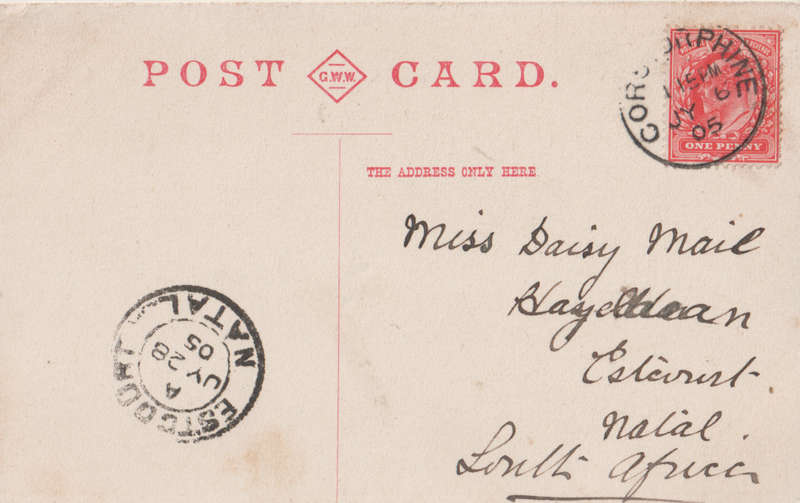 POST G.W.W. CARD.
CORSTORPHINE
1 15 PM
JY 6
05
ONE PENNY
THE ADDRESS ONLY HERE.
Miss Daisy Mail
Hazeldean
Estcourt
Natal.
South Africa
ESTCOURT NATAL
A
JY 28
05